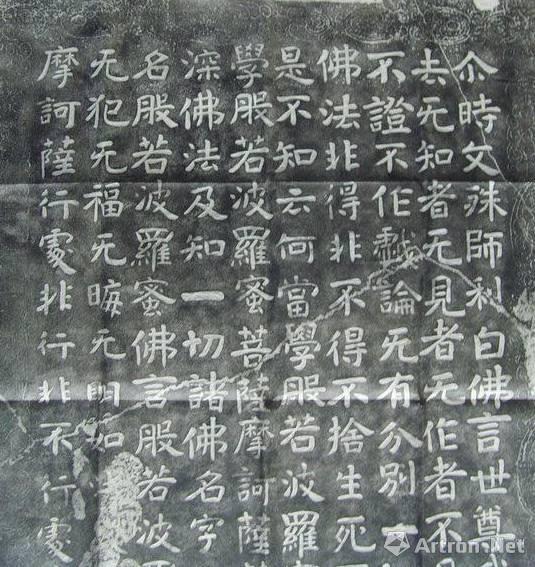 尒時文殊師利白佛言世尊
去无知者无見者无作者不
不證不作戲論无有分別一
佛法非得非不得不捨生死
是不知云何當學般若波羅
學般若波羅蜜菩薩摩訶薩
深佛法及知一切諸佛名字
名般若波羅蜜佛言般若波
无犯无福无晦无明如
摩訶薩行處非行非不行處
Artron.Net